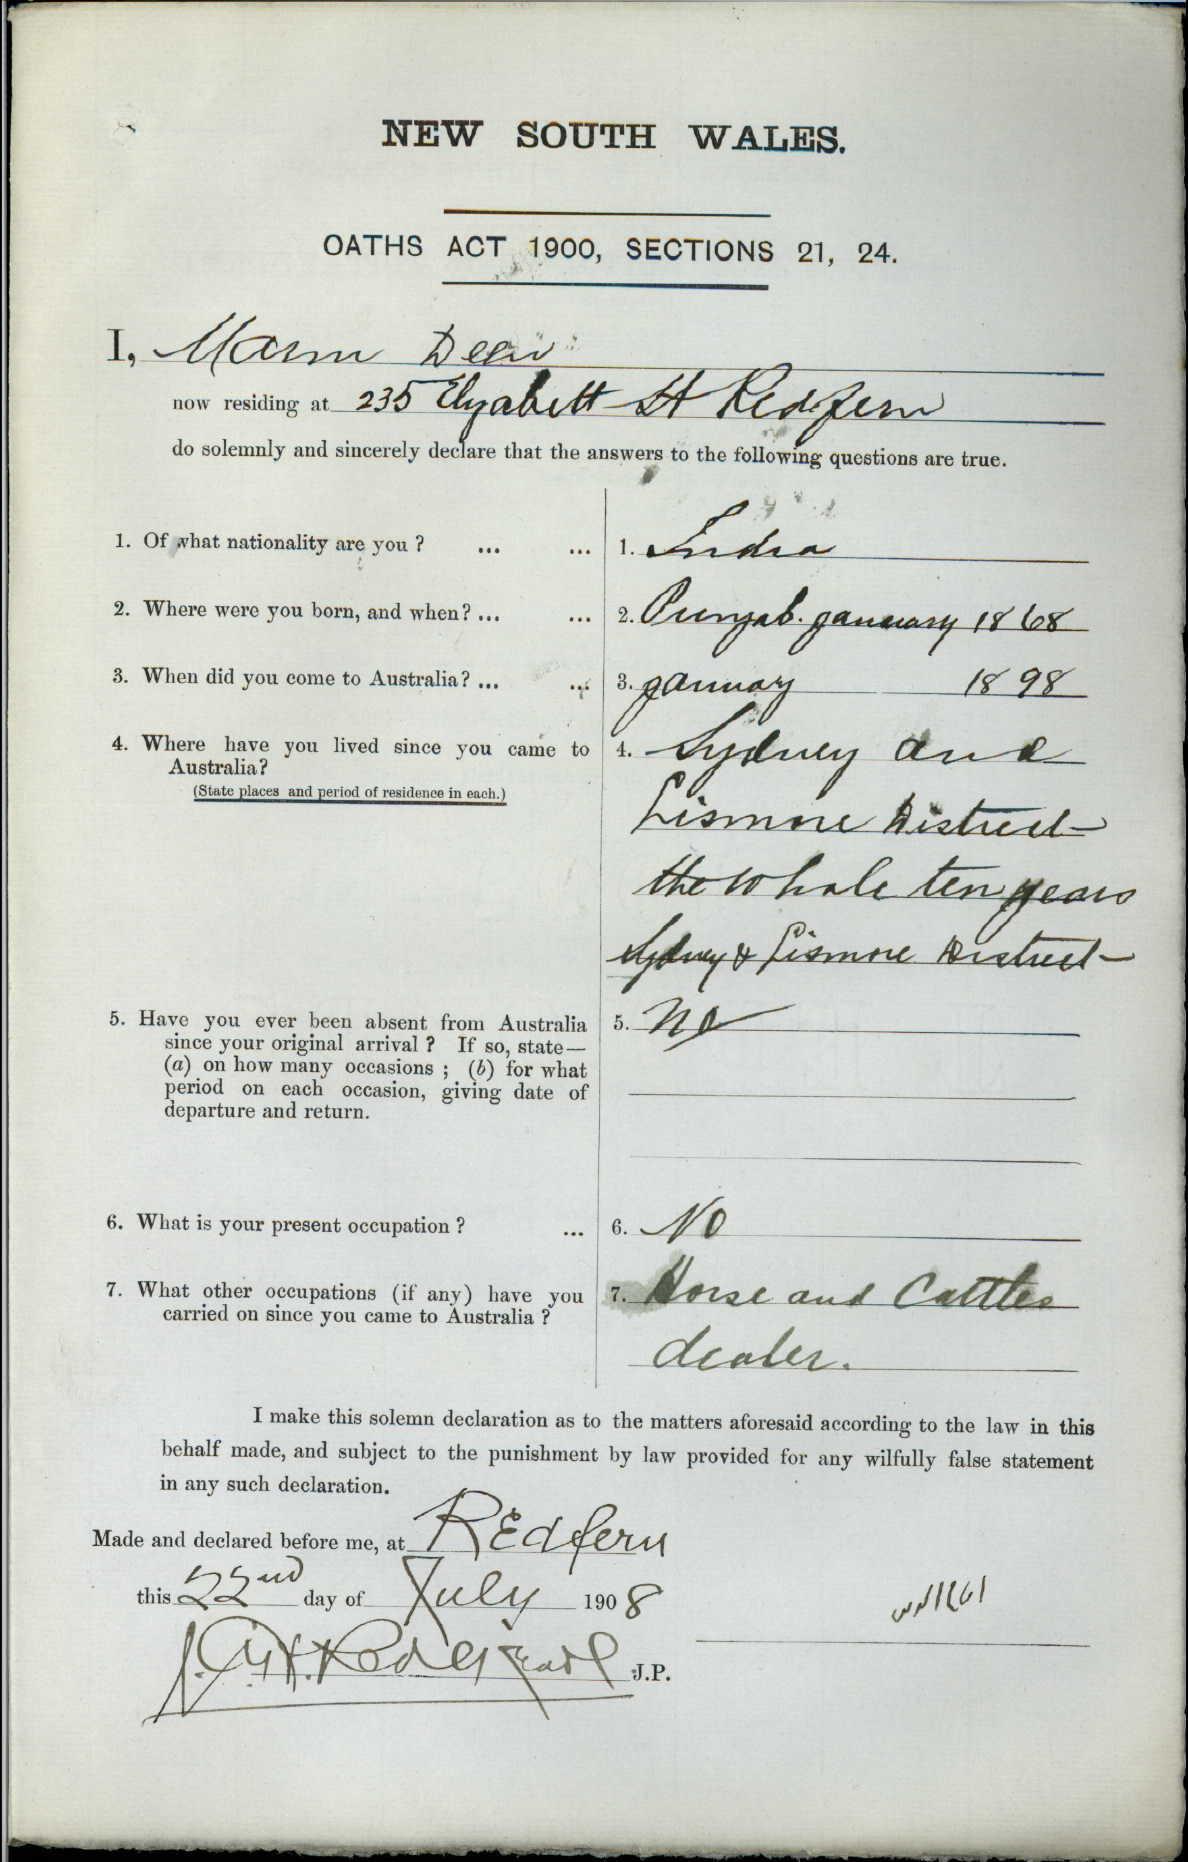 NEW SOUTH WALES.
OATHS ACT 1900, SECTIONS 21, 24.
I, Marm Deen
now residing at 235 Elyzabett St Redfern
do solemnly and sincerely declare that the answers to the following questions are true.
1. Of what nationality are you ? ... ... 1. India
2. Where were you born, and when? ... ... 2. Punjab. january 1868
3. When did you come to Australia? ... ... 3. january 1898
4. Where have you lived since you came to 4. Sydney and
Australia?
(State places and period of residence in each.)
Lismore District
the whole ten years
Sydney & Lismore District
5. Have you ever been absent from Australia 5. no
since your original arrival ? If so, state—
(a) on how many occasions ; (b) for what
period on each occasion, giving date of
departure and return.
6. What is your present occupation ? ... 6. No
7. What other occupations (if any) have you 7. Horse and Cattles
carried on since you came to Australia ?
dealer.
I make this solemn declaration as to the matters aforesaid according to the law in this
behalf made, and subject to the punishment by law provided for any wilfully false statement
in any such declaration.
Made and declared before me, at Redfern
this 22nd day of July 1908
J.P.